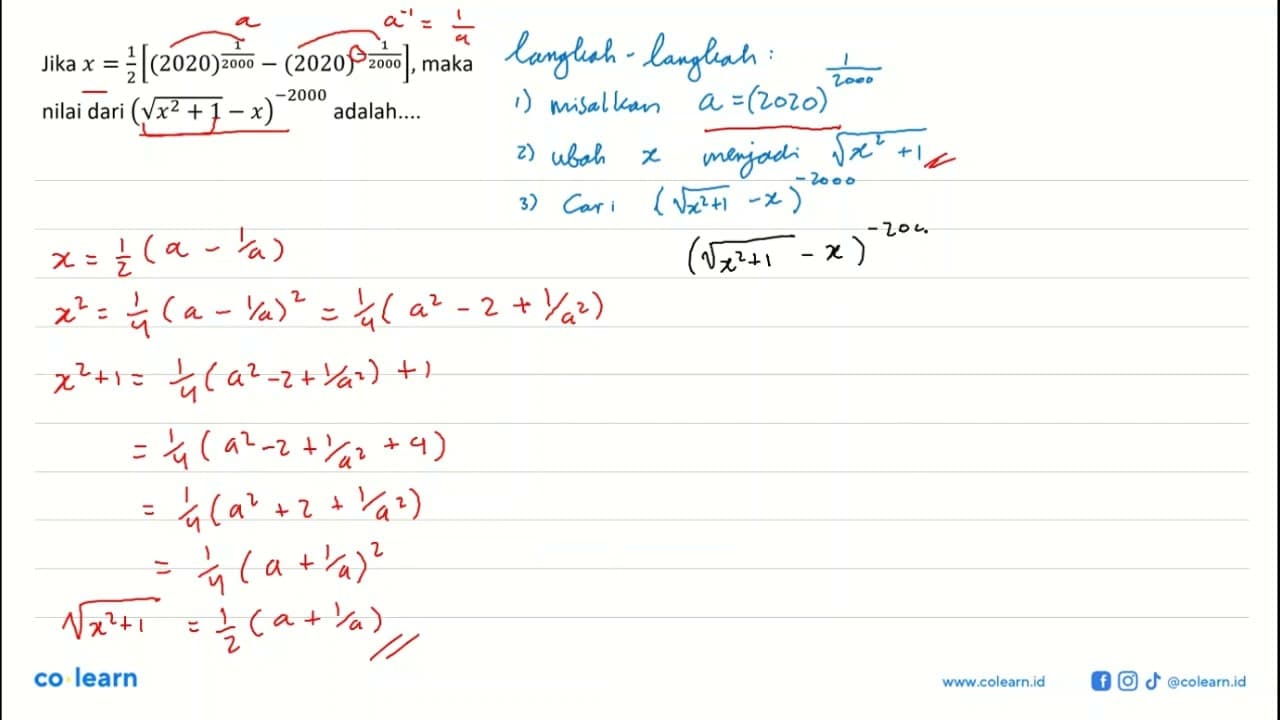 a a⁻¹ = 1/a
Jika x = 1/2 [(2020)^(1/2000) − (2020)^(−1/2000)], maka
nilai dari (√(x² + 1) − x)^(−2000) adalah....
langkah - langkah :
1) misalkan a = (2020)^(1/2000)
2) ubah x menjadi √(x² + 1)
3) Cari (√(x²+1) − x)^(−2000)
(√(x²+1) − x)^(−200
x = 1/2 (a − 1/a)
x² = 1/4 (a − 1/a)² = 1/4 (a² − 2 + 1/a²)
x² + 1 = 1/4 (a² − 2 + 1/a²) + 1
= 1/4 (a² − 2 + 1/a² + 4)
= 1/4 (a² + 2 + 1/a²)
= 1/4 (a + 1/a)²
√(x²+1) = 1/2 (a + 1/a)
co·learn
www.colearn.id
@colearn.id